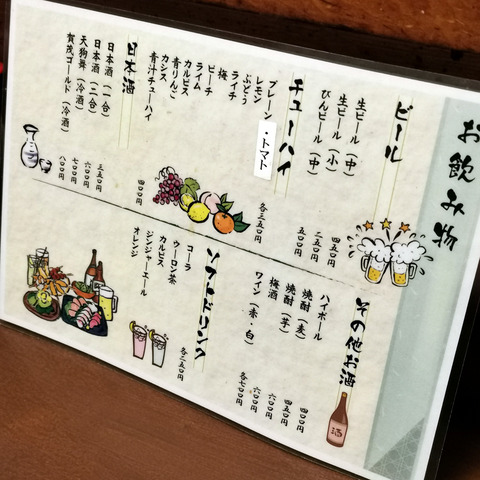 お飲み物
ビール
生ビール（中） 四五〇円
生ビール（小） 二五〇円
びんビール（中） 五〇〇円
チューハイ
プレーン 各三五〇円
レモン
・トマト
ぶどう
ライチ
梅
ピーチ
ライム
カルピス
青りんご
カシス
青汁チューハイ 四〇〇円
日本酒
日本酒（一合） 三五〇円
日本酒（二合） 六〇〇円
天狗舞（冷酒） 七〇〇円
賀茂ゴールド（冷酒） 八〇〇円
その他お酒
ハイボール 四〇〇円
焼酎（麦） 四五〇円
焼酎（芋） 六〇〇円
梅酒 六〇〇円
ワイン（赤・白） 各七〇〇円
酒
ソフトドリンク
コーラ 各二五〇円
ウーロン茶
カルピス
ジンジャーエール
オレンジ